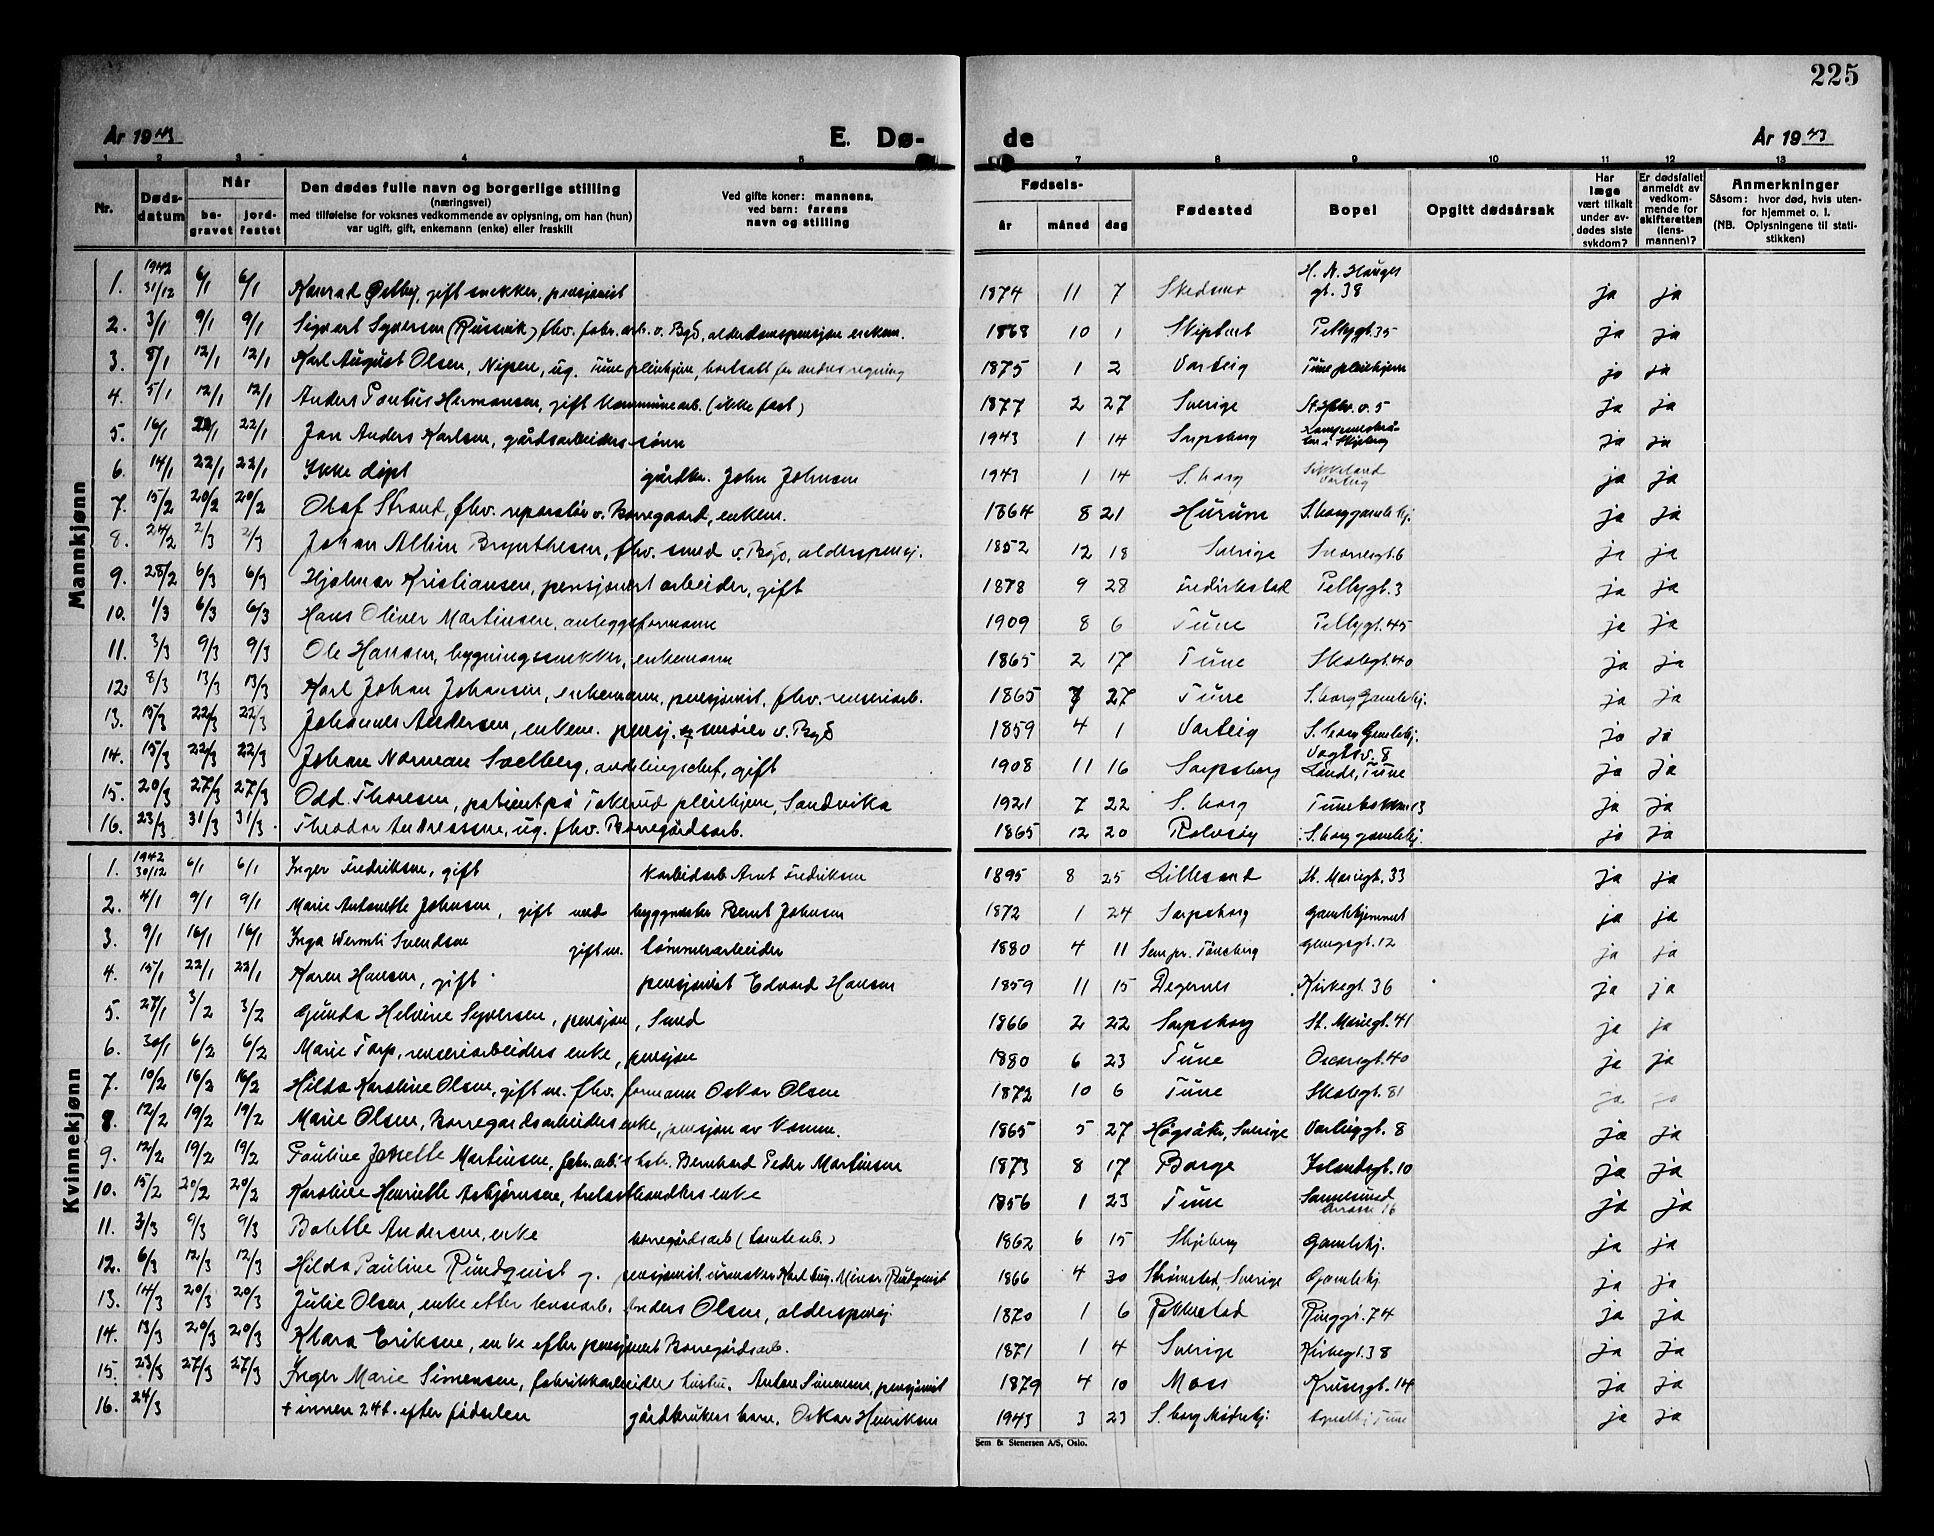 225
År 1943 E. Dø- de År 1943
1 2 3 4 5 7 8 9 10 11 12 13
Nr. Døds-datum Når be-gravet jord-festet Den dødes fulle navn og borgerlige stilling (næringsvei) med tilføielse for voksnes vedkommende av oplysning, om han (hun) var ugift, gift, enkemann (enke) eller fraskilt Ved gifte koner: mannens, ved barn: farens navn og stilling Fødsels- år måned dag Fødested Bopel Opgitt dødsårsak Har læge vært tilkalt under av-dødes siste sykdom? Er dødsfallet anmeldt av vedkom-mende for skifteretten (lens-mannen)? Anmerkninger Såsom: hvor død, hvis uten-for hjemmet o. l. (NB. Oplysningene til stati-stikken)
Mannkjønn
1. 1942 31/12 6/1 6/1 Konrad Østby, gift snekker, pensjonist 1874 11 7 Skedsmo H. N. Hauges gt. 38 ja ja
2. 3/1 9/1 9/1 Sigvart Syversen (Rusvik) fhv. fabr. arb. v. Bgd, alderdomspensjon enkem. 1868 10 1 Skiptvet Pellygt. 35 ja ja
3. 8/1 12/1 12/1 Karl August Olsen, Nipen, ug. Tune pleiehjem, bortsatt for andres regning 1875 1 2 Varteig Tune pleiehjem ja ja
4. 5/1 12/1 12/1 Anders Pontus Hermansen, gift kommunearb. (ikke fast) 1877 2 27 Sverige v. 5 ja ja
5. 16/1 22/1 22/1 Jan Anders Karlsen, gårdsarbeiders sønn 1943 1 14 Sarpsborg i Skjeberg ja ja
6. 14/1 22/1 22/1 Ikke døpt gårdbr. John Johnsen 1943 1 14 S.borg Varteig ja ja
7. 15/2 20/2 20/2 Olaf Strand, fhv. reparatør v. Borregaard, enkem. 1864 8 21 Hurum S.borg gamlehj. ja ja
8. 24/2 2/3 2/3 Johan Albin Brynthesen, fhv. smed v. Bgd, alderspensj. 1852 12 18 Sverige Snorresgt. 6 ja ja
9. 28/2 6/3 6/3 Hjalmar Kristiansen, pensjonert arbeider, gift 1878 9 28 Fredrikstad Pellygt. 3 ja ja
10. 1/3 6/3 6/3 Hans Oliver Martinsen, anleggsformann 1909 8 6 Tune Pellygt. 45 ja ja
11. 3/3 9/3 9/3 Ole Hansen, bygningssnekker, enkemann 1865 2 17 Tune Skolegt. 40 ja ja
12. 8/3 13/3 13/3 Karl Johan Johansen, enkemann, pensjonist, fhv. renseriarb. 1865 7 27 Tune S.borg Gamlehj. ja ja
13. 15/3 22/3 22/3 Johannes Andersen, enkem. pensj. smører v. Bgd 1859 4 1 Varteig S.borg Gamlehj. ja ja
14. 15/3 22/3 22/3 Johan Norman Solberg, avdelingschef, gift 1908 11 16 Sarpsborg Vogtsv. 8 Lande, Tune ja ja
15. 20/3 27/3 27/3 Odd Thoresen, patient på Tokerud pleiehjem, Sandvika 1921 7 22 S.borg Tunebakken 13 ja ja
16. 23/3 31/3 31/3 Theodor Andreassen, ug. fhv. Borregårdsarb. 1865 12 20 Rolvsøy S.borg gamlehj. ja ja
Kvinnekjønn
1. 1942 30/12 6/1 6/1 Inger Fredriksen, gift karbidarb Arnt Fredriksen 1895 8 25 Lillesand St. Mariegt. 33 ja ja
2. 4/1 9/1 9/1 Marie Antonette Johnsen, gift med byggmester Bernt Johnsen 1872 1 24 Sarpsborg Gamlehjemmet ja ja
3. 9/1 16/1 16/1 Inga Wermli Svendsen gift m. tømmerarbeider 1880 4 11 Sem pr. Tønsberg gt. 12 ja ja
4. 15/1 22/1 22/1 Karen Hansen, gift pensjonist Edvard Hansen 1859 11 15 Degernes Kirkegt. 36 ja ja
5. 27/1 3/2 3/2 Gunda Helvine Syversen, pensjon, Smed 1866 2 22 Sarpsborg St. Mariegt. 41 ja ja
6. 30/1 6/2 6/2 Marie Torp, renseriarbeiders enke, pensjon 1880 6 23 Tune Oscarsgt. 40 ja ja
7. 10/2 16/2 16/2 Hilda Karoline Olsen, gift m. fhv. formann Oskar Olsen 1872 10 6 Tune Skolegt. 81 ja ja
8. 12/2 19/2 19/2 Marie Olsen, Borregardsarbeiders enke, pensjon av komm. 1865 5 27 Högsäter, Sverige Varteiggt. 8 ja ja
9. 12/2 19/2 19/2 Pauline Jenette Martinsen, fabr. arb.'s hstr. Bernhard Peder Martinsen 1873 8 17 Borge Islandsgt. 10 ja ja
10. 15/2 20/2 20/2 Karoline Henriette Asbjørnsen, trelasthandlers enke 1856 1 23 Tune Sannesund 16 ja ja
11. 3/3 9/3 9/3 Bolette Andersen, enke borregårdsarb (tomtearb.) 1862 6 15 Skjeberg Gamlehj. ja ja
12. 6/3 12/3 12/3 Hilda Pauline Rundquist g. pensjonist urmaker Karl Aug. Minor Rundquist 1866 4 30 Strømstad, Sverige Gamlehj. ja ja
13. 14/3 20/3 20/3 Julie Olsen, enke efter Anders Olsen, alderspensj. 1870 1 6 Rakkestad Ringgt. 74 ja ja
14. 13/3 20/3 20/3 Klara Eriksen, enke efter pensjonert Borregårdsarb. 1871 1 4 Sverige Kirkegt. 38 ja ja
15. 23/3 27/3 27/3 Inger Marie Simensen, fabrikkarbeiders hustru. Anton Simensen, pensjonist 1879 4 10 Moss Krusesgt. 14 ja ja
16. 24/3 + innen 24 t. efter fødselen gårdbrukers barn, Oskar Henriksen 1943 3 23 S.borg Mødrehj. Tune ja ja
Sem & Stenersen A/S, Oslo.